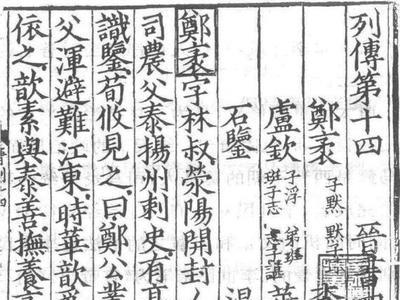 列傳第十四 晉書四
鄭袤 子默 默子
盧欽 子浮 弟珽 珽子志 志子諶
石鑒
鄭袤字林叔滎陽開封人
司農父泰揚州刺史有高
識鑒荀攸見之曰鄭公業
父渾避難江東時華歆爲
依之歆素與泰善撫養